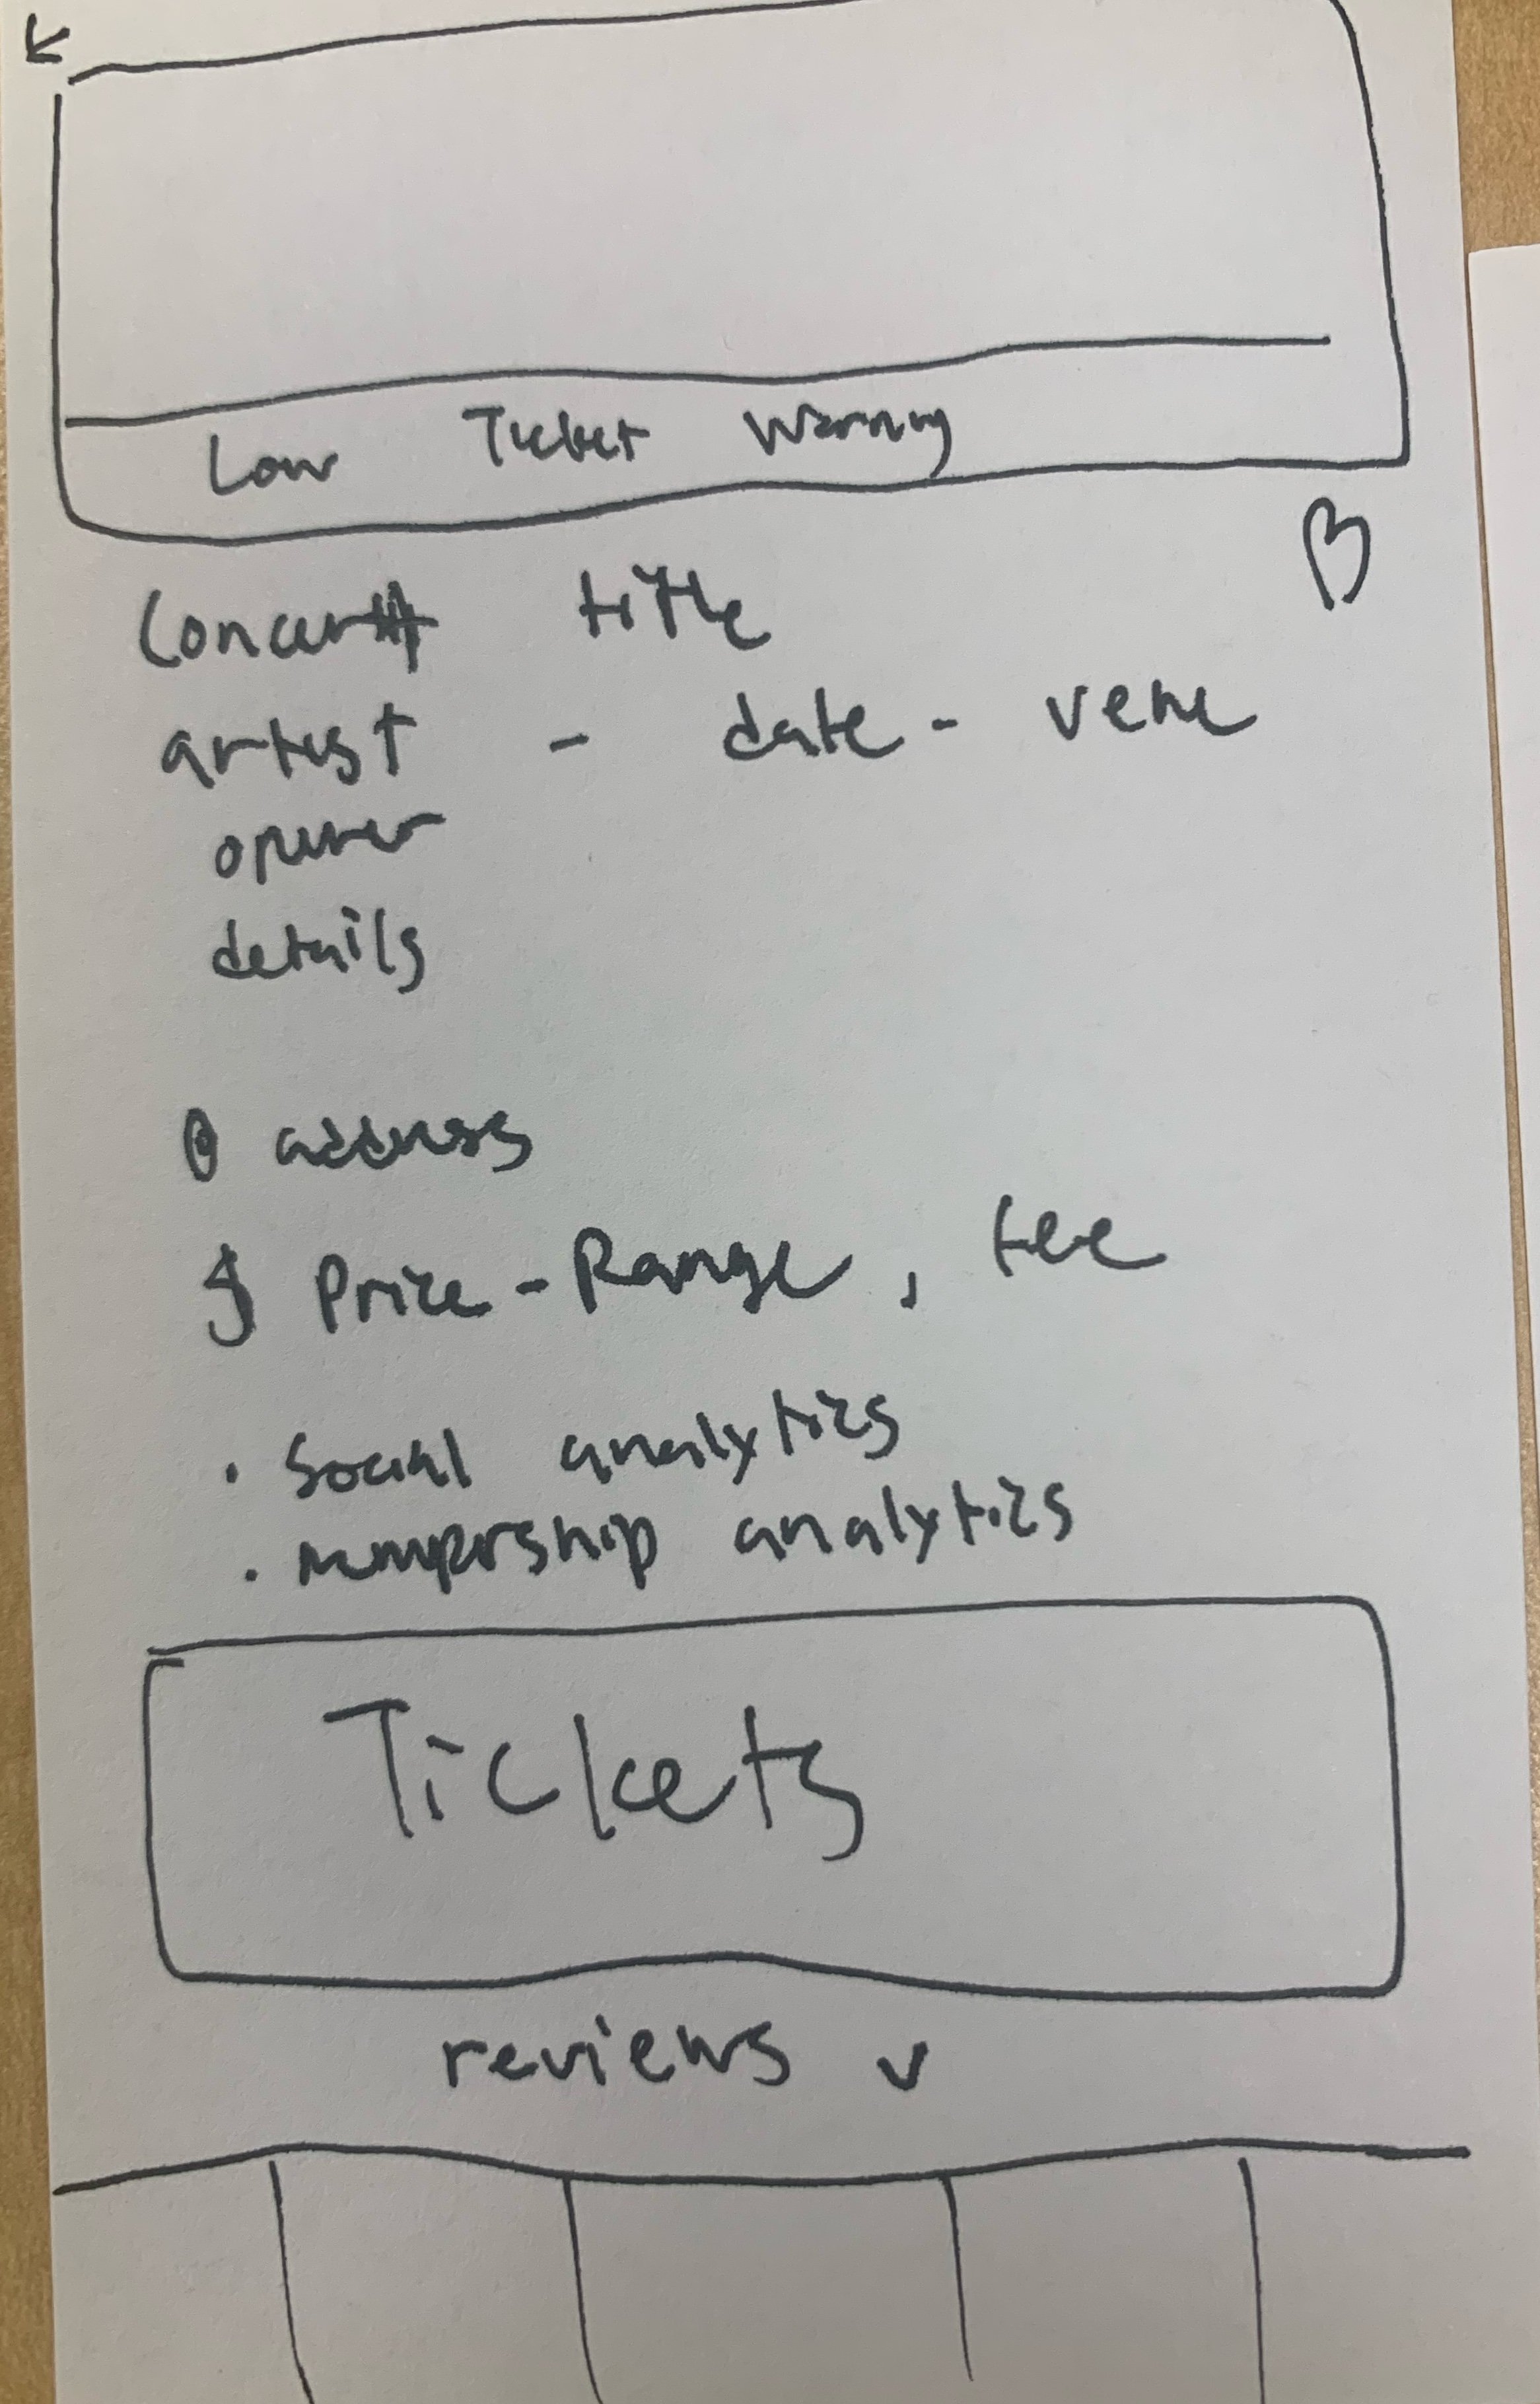 Low Ticket Warning
Concert title
artist - date - venue
opener
details
address
$ Price - Range, fee
• Social analytics
• membership analytics
Tickets
reviews v